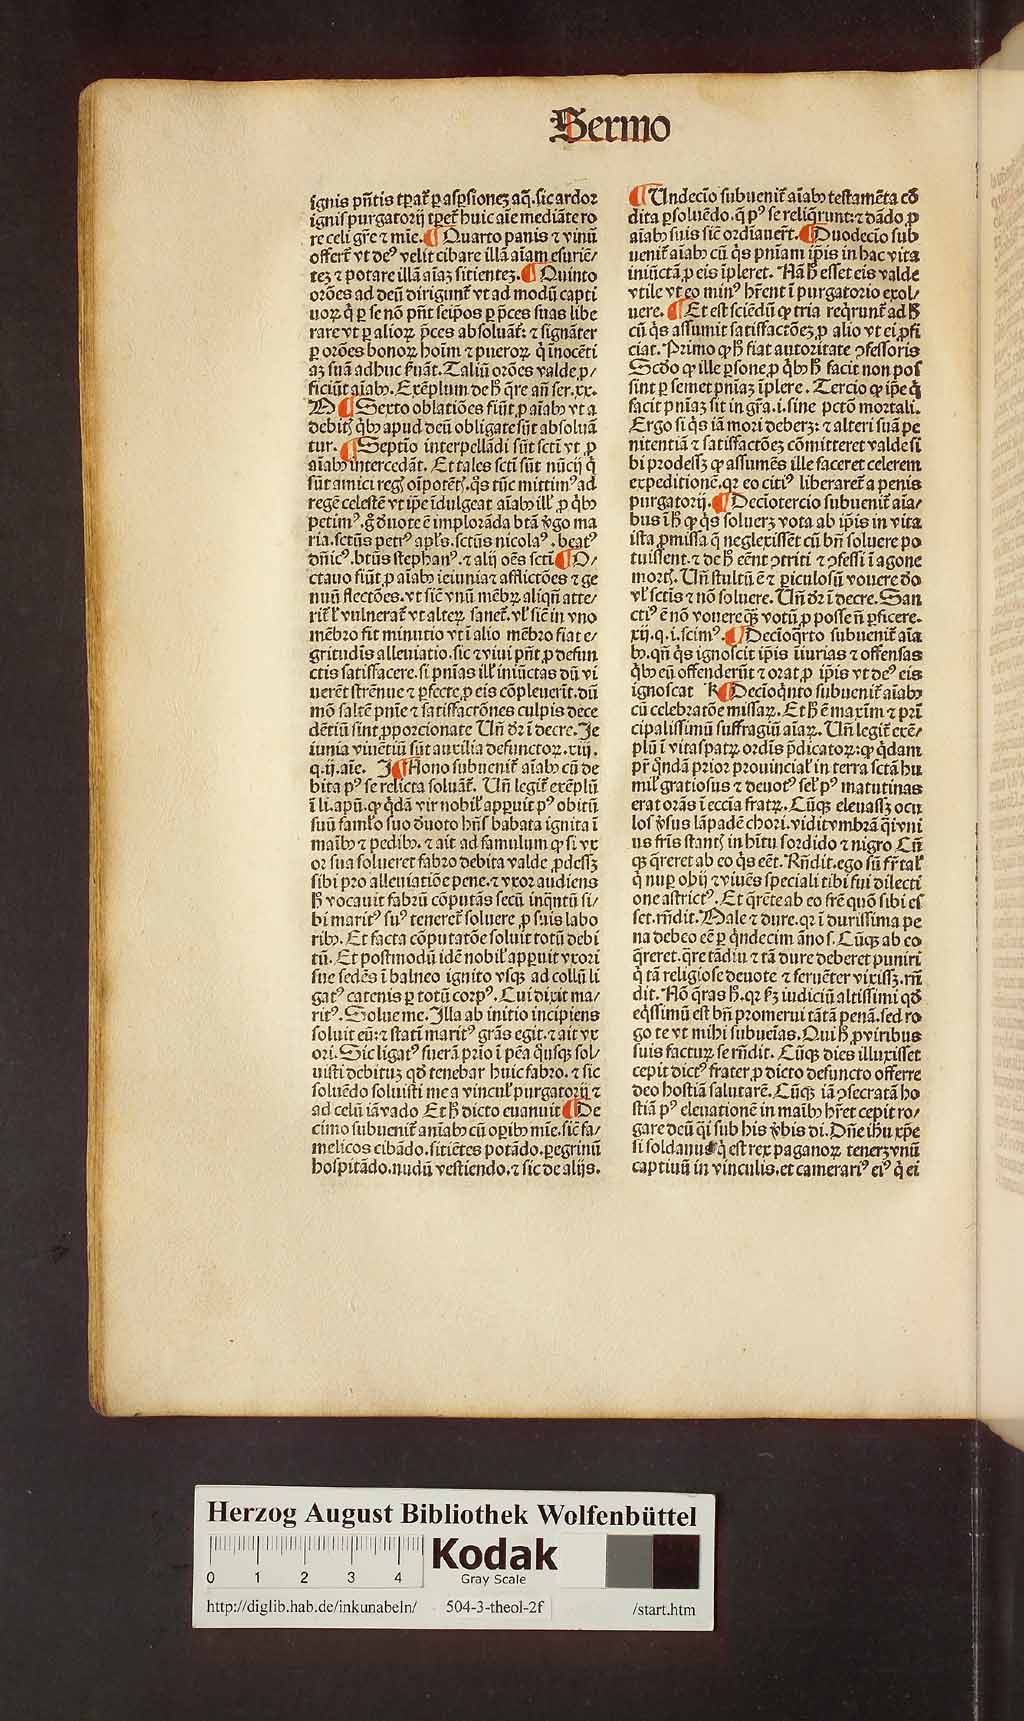 Sermo
ignis pn̄tis tꝑat᷑ ꝑ asꝑsionez aq̄. sic ardor
ignis purgatorij tꝑet᷑ huic aīe mediāte ro
re celi gr̄e ⁊ mīe. ¶ Quarto panis ⁊ vinū
offert᷑ vt deꝰ velit cibare illā aīam esuriē/
tez ⁊ potare illā aīaz sitientez. ¶ Quinto
orōes ad deū dirigunt᷑ vt ad modū capti
uoꝝ q̇ ꝑ se nō pn̄t seip̄os ꝑ p̄ces suas libe
rare vt ꝑ alioꝝ p̄ces absoluāt᷑: ⁊ signāter
ꝑ orōes bonoꝝ hoīm ⁊ pueroꝝ q̇ īnocēti
az suā adhuc ẜuāt. Taliū orōes valde ꝓ/
ficiūt aīabꝰ. Exēplum de h̄ q̄re an̄ ser. xx.
M ¶ Sexto oblatiōes fiūt ꝓ aīabꝰ vt a
debitꝭ q̇bꝰ apud deū obligate sūt absoluā
tur. ¶ Septīo interpellādi sūt scti vt ꝓ
aīabꝰ intercedāt. Et tales scti sūt nūcij q̇
sūt amici regꝭ oīpotētꝭ. q̇s tūc mittimꝰ ad
regē celestē vt ip̄e īdulgeat aīabꝰ ill̓ ꝓ q̇bꝰ
petimꝰ. g̊ deuote ē implorāda btā v̓go ma
ria. sctūs petrꝰ apl̓s. sctūs nicolaꝰ. beatꝰ
dn̄icꝰ. btūs stephanꝰ. ⁊ alij oēs scti ¶ O/
ctauo fiūt ꝓ aīabꝰ ieiunia ⁊ afflictōes ⁊ ge
nuū flectōes. vt sic̄ vnū mēbꝝ aliqn̄ atte/
rit᷑ l̓ vulnerat᷑ vt alteꝝ sanet᷑. vl̓ sic̄ in vno
mēbro fit minutio vt ī alio mēbro fiat e/
gritudīs alleuiatio. sic ⁊ viui pn̄t ꝓ defun
ctis satisfacere. si pnīas ill̓ iniūctas dū vi
uerēt strēnue ⁊ ꝑfecte ꝓ eis cōpleuerīt. dū
mō saltē pnīe ⁊ satisfactōnes culpis dece
dētiū sint ꝓporcionate Un̄ dr̄ ī decre. Ie
iunia viuētiū sūt auxilia defunctoꝝ. xiij.
q. ij. aīe. I ¶ Nono subuenit᷑ aīabꝰ cū de
bita pꝰ se relicta soluāt᷑. Un̄ legit᷑ exēplū
ī li. apū. ꝙ q̇dā vir nobil̓ apꝑuit pꝰ obitū
suū faml̓o suo deuoto hn̄s babata ignita ī
maībꝰ ⁊ pedibꝰ. ⁊ ait ad famulum ꝙ si vx
or sua solueret fabro debita valde ꝓdessꝫ
sibi pro alleuiatiōe pene. ⁊ vxor audiens
h̄ vocauit fabrū cōputās secū inq̇ntū si/
bi maritꝰ suꝰ teneret᷑ soluere ꝓ suis labo
ribꝰ. Et facta cōputatōe soluit totū debi
tū. Et postmodū idē nobil̓ apꝑuit vxori
sue sedēs ī balneo ignito vsqꝫ ad collū li
gatꝰ catenis ꝑ totū corpꝰ. Cui dixit ma/
ritꝰ. Solue me. Illa ab initio incipiens
soluit eū: ⁊ statī maritꝰ grās egit. ⁊ ait vx
ori. Sic ligatꝰ fuerā prīo ī pēa q̇usqꝫ sol/
uisti debitum qd̄ tenebar huic fabro. ⁊ sic
soluēdo soluisti me a vincul̓ purgatorij ⁊
ad celū iā vado Et h̄ dicto euanuit ¶ De
cimo subuenit᷑ anīabꝰ cū oꝑibꝰ mīe. sic̄ fa/
melicos cibādo. sitiētes potādo. ꝑegrinū
hospitādo. nudū vestiendo. ⁊ sic de alijs.
¶ Undecīo subuenit᷑ aīabꝰ testamēta cō
dita ꝑsoluēdo. q̄ pꝰ se reliq̄runt: ⁊ dādo ꝓ
aīabꝰ suis sic̄ ordīauer̄t. ¶ Duodecīo sub
uenit᷑ aīabꝰ cū q̇s pnīam ip̄is in hac vita
iniūctā ꝓ eis īpleret. Nā h̄ esset eis valde
vtile vt eo minꝰ hr̄ent ī purgatorio exol/
uere. ¶ Et est sciēdū ꝙ tria reqrunt᷑ ad h̄
cū q̇s assumit satisfactōez ꝓ alio vt ei ꝓfi
ciat. Primo ꝙ h̄ fiat autoritate ꝯfessoris
Scd̄o ꝙ ille ꝑsone ꝓ q̇bꝰ h̄ facit non pos
sint ꝑ semet pnīaz īplere. Tercio ꝙ ip̄e q̇
facit pnīaz sit in gr̄a. i. sine pctō mortali.
Ergo si q̇s iā mori deberꝫ: ⁊ alteri suā pe
nitentiā ⁊ satisfactōez cōmitteret valde si
bi prodessꝫ ꝙ assumēs ille faceret celerem
expeditionē. qꝛ eo citiꝰ liberaret᷑ a penis
purgatorij. ¶ Decīotercio subuenit᷑ aīa/
bus ī h̄ ꝙ q̇s soluerꝫ vota ab ip̄is in vita
ista ꝓmissa q̄ neglexissēt cū bn̄ soluere po
tuissent. ⁊ de h̄ eēnt ꝯtriti ⁊ ꝯfessi ī agone
mortꝭ. Un̄ stultū ē ⁊ ꝑiculosū vouere deo
vl̓ sctis ⁊ nō soluere. Un̄ dr̄ ī decre. San
ctiꝰ ē nō vouere qꝫ votū ꝓ posse n̄ ꝑficere.
xij. q. i. scimꝰ. ¶ Decīoq̄rto subuenit᷑ aīa
bꝰ. qn̄ q̇s ignoscit ip̄is īiurias ⁊ offensas
q̇bꝰ eū offenderūt ⁊ orat ꝓ ip̄is vt deꝰ eis
ignoscat K ¶ Decīoq̇nto subuenit᷑ aīabꝰ
cū celebratōe missaꝝ. Et h̄ ē maxīm ⁊ prī
cipalissimū suffragiū aīaꝝ. Un̄ legit᷑ exē/
plū ī vitaspatꝝ ordīs p̄dicatoꝝ: ꝙ q̇dam
pr̄ q̇ndā prior prouincial̓ in terra sctā hu
mil̓ gratiosus ⁊ deuotꝰ sel̓ pꝰ matutinas
erat orās ī ecc̄ia fratꝝ. Cūqꝫ eleuassꝫ ocu
los v̓sus lāpadē chori. vidit vmbrā q̄i vni
us fr̄is stantꝭ in hītu sordido ⁊ nigro Cū
qꝫ q̄reret ab eo q̇s eēt. Rn̄dit. ego sū fr̄ tal̓
q̇ nuꝑ obij ⁊ viuēs speciali tibi fui dilecti
one astrictꝰ. Et q̄rēte ab eo fr̄e quō sibi es
set. rn̄dit. Male ⁊ dure. qꝛ ī durissima pe
na debeo eē ꝑ q̇ndecim ānos. Cūqꝫ ab eo
q̄reret. q̄re tādiu ⁊ tā dure deberet puniri
q̇ tā religiose deuote ⁊ feruēter vixissꝫ. rn̄
dit. Nō q̄ras h̄. qꝛ ẜꝫ iudiciū altissimi qd̄
eq̇ssimū est bn̄ promerui tātā penā. sed ro
go te vt mihi subueīas. Qui h̄ ꝓ viribus
suis facturꝫ se rn̄dit. Cūqꝫ dies illuxisset
cepit dictꝰ frater ꝓ dicto defuncto offerre
deo hostiā salutarē. Cūqꝫ iā ꝯsecratā ho
stiā pꝰ eleuationē in maībꝰ hr̄et cepit ro/
gare deū q̄i sub his v̓bis di. Dn̄e ihū xp̄e
si soldanus q̇ est rex paganoꝝ tenerꝫ vnū
captiuū in vinculis. et camerariꝰ eiꝰ q̇ ei
Herzog August Bibliothek Wolfenbüttel
0 1 2 3 4
Kodak
Gray Scale
http://diglib.hab.de/inkunabeln/ 504-3-theol-2f /start.htm